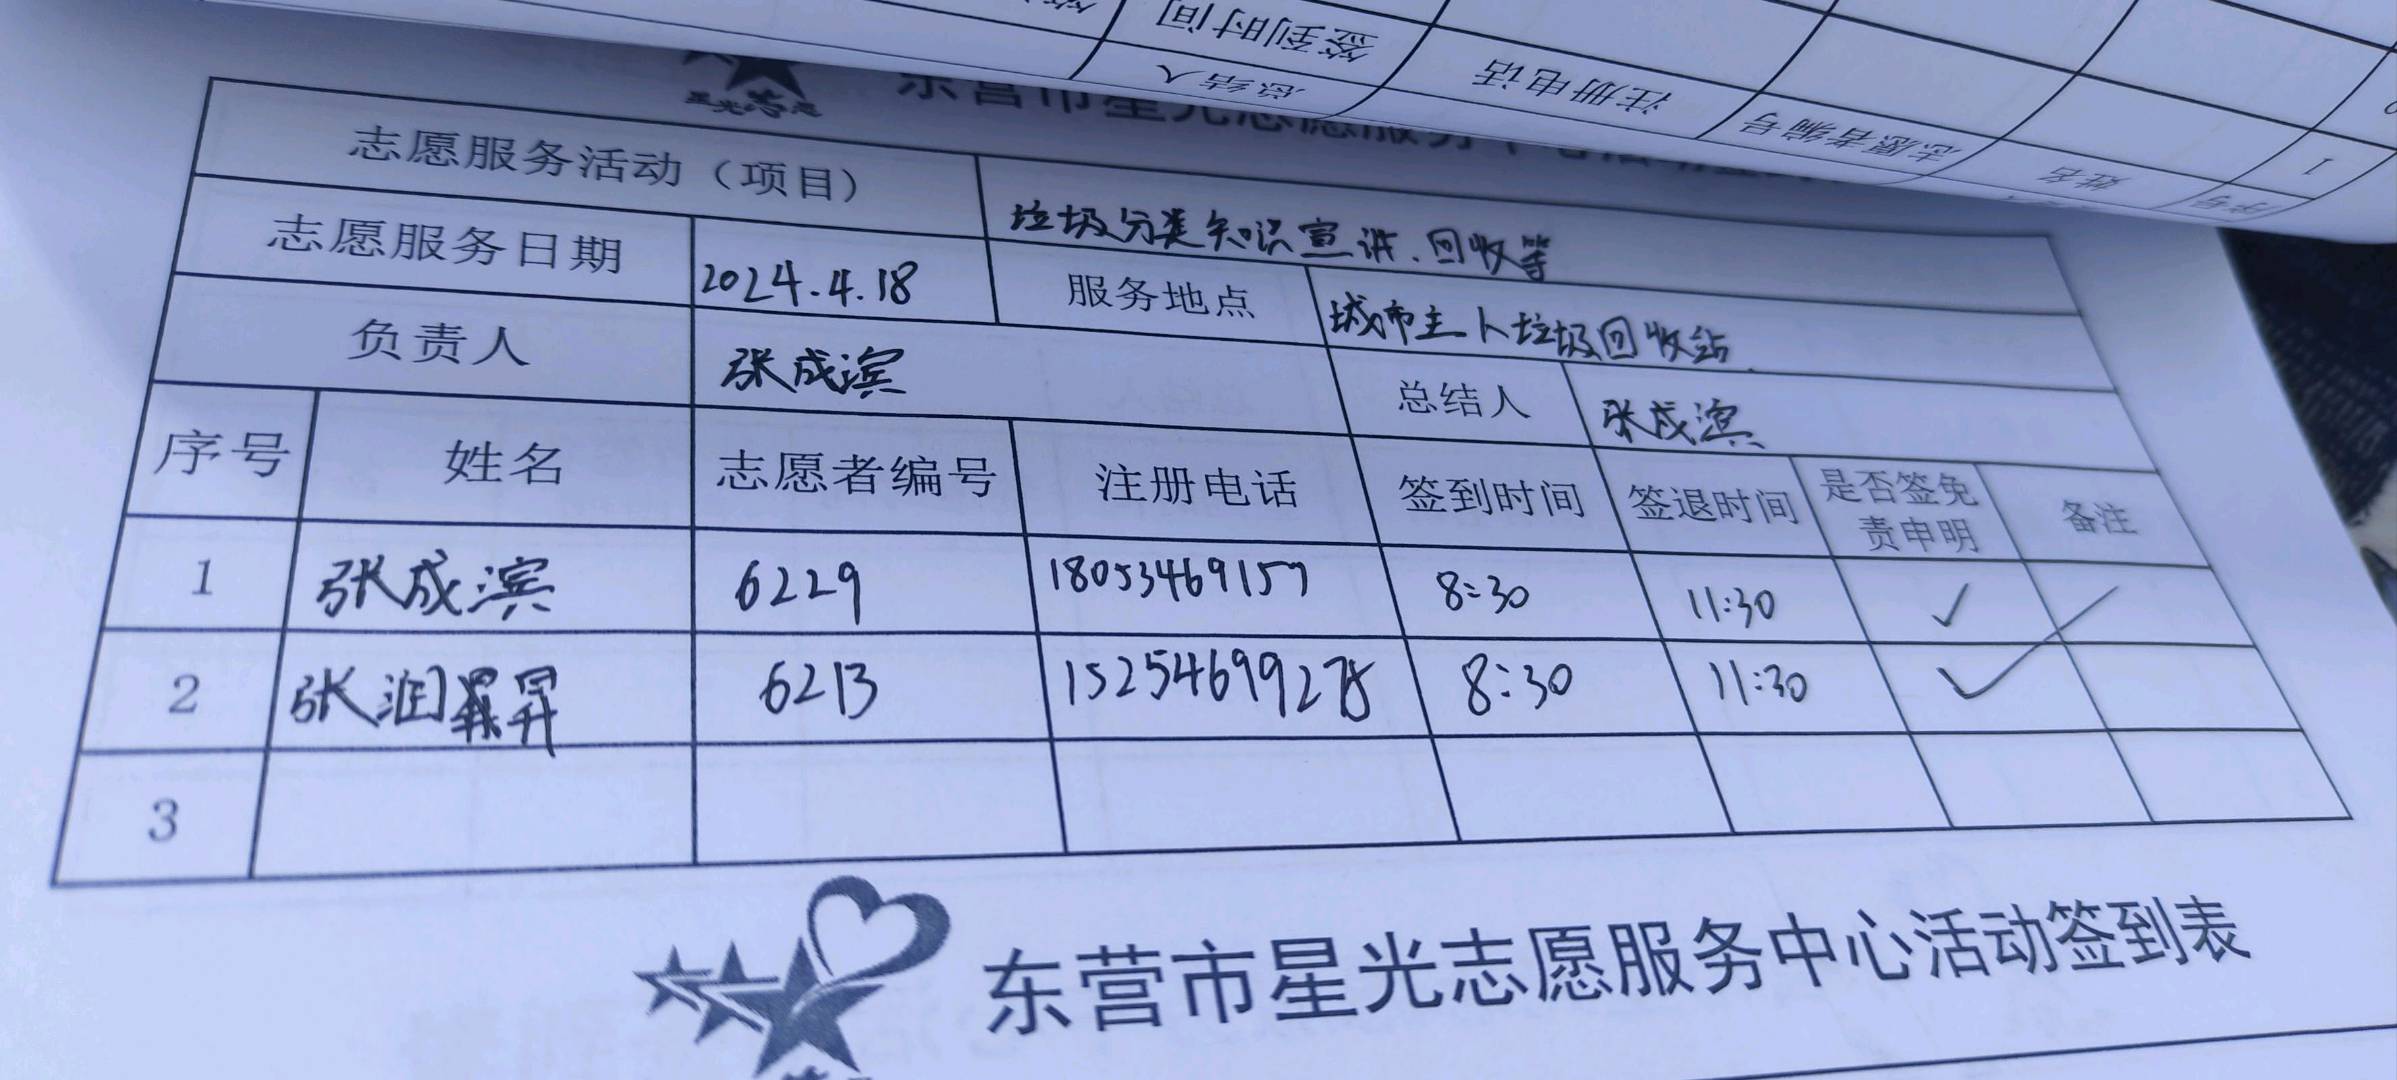 签到时间
总结人
注册电话
志愿者编号
姓名
序号
1
星光志愿
东营市星光志愿服务中心活动签
志愿服务活动（项目） 垃圾分类知识宣讲、回收等
志愿服务日期 2024.4.18 服务地点 城市主人垃圾回收站
负责人 张成滨 总结人 张成滨
序号 姓名 志愿者编号 注册电话 签到时间 签退时间 是否签免责申明 备注
1 张成滨 6229 18053469157 8:30 11:30 ✓
2 张润 6213 8:30 11:30 ✓
3
东营市星光志愿服务中心活动签到表